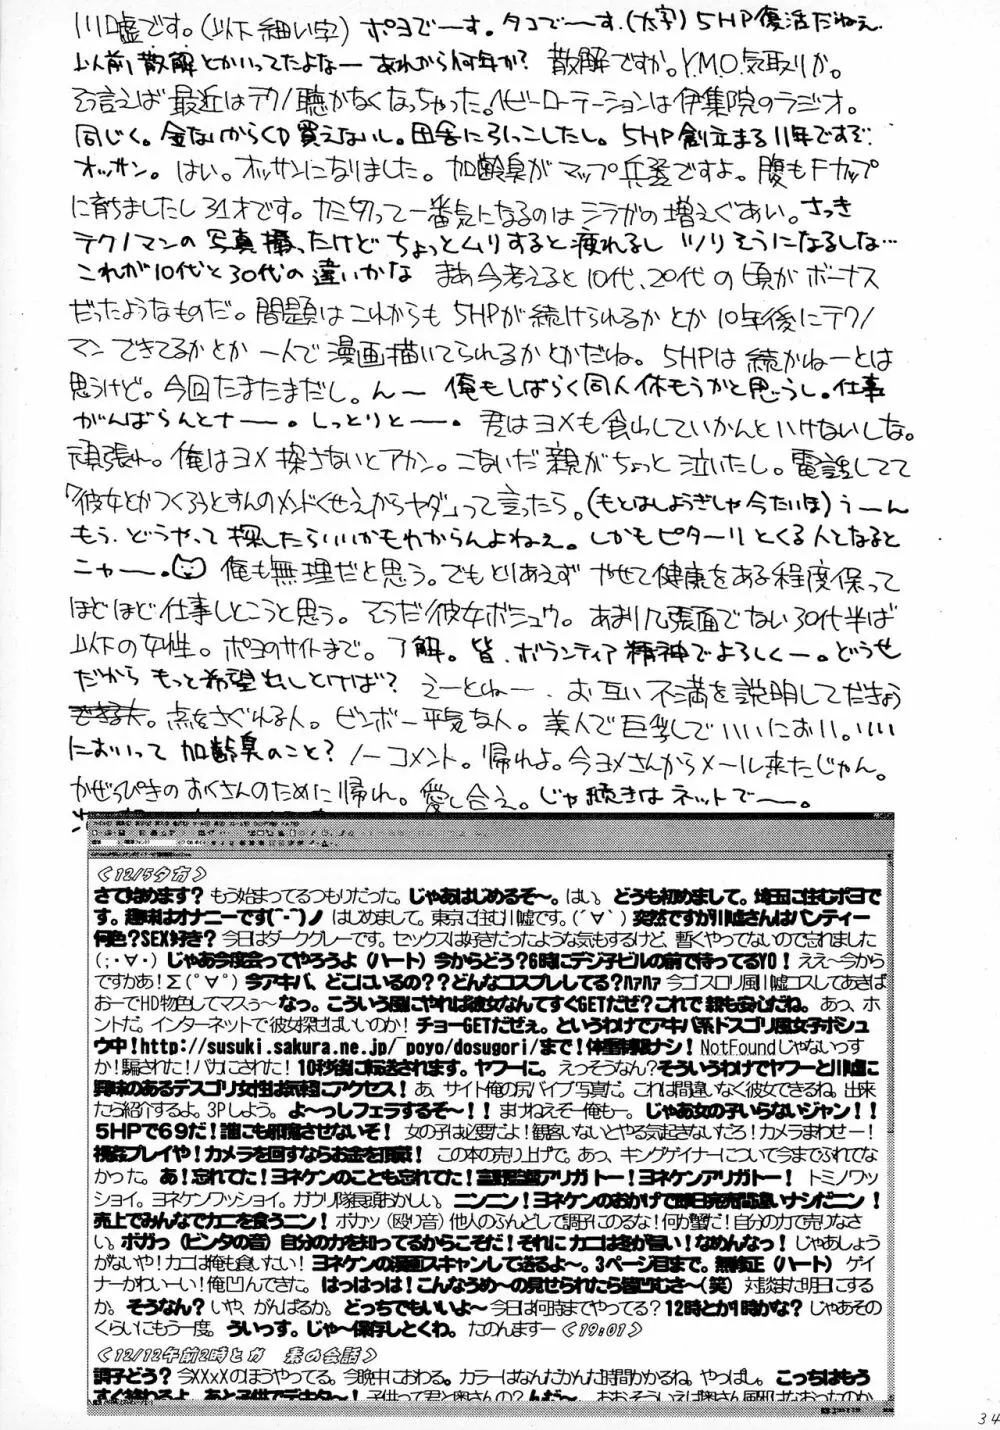 川嘘です。(以下細い字) ポヨでーす。タコでーす。(太字) 5HP復活だねぇ
以前、散解とかいってたよなー あれから何年か? 散解ですか。Y.M.O.気取りか。
そう言えば最近はテクノ聴かなくなっちゃった。ヘビーローテーションは伊集院のラジオ。
同じく。金ないからCD買えないし。田舎に引っこしたし。5HP創立まる11年ですぞ
オッサン。はい。オッサンになりました。加齢臭がマップ兵器ですよ。腹もFカップ
に育ちましたし31才です。カミ切って一番気になるのはシラガの増えぐあい。さっき
テクノマンの写真撮ったけどちょっとムリすると疲れるし ツリそうになるしな…
これが10代と30代の違いかな まあ今考えると10代、20代の頃がボーナス
だったようなものだ。問題はこれからも5HPが続けられるかとか10年後にテクノ
マンできてるかとか一人で漫画描いてられるかとかだね。5HPは続かねーとは
思うけど。今回たまたまだし。んー 俺もしばらく同人休もうかと思うし。仕事
がんばらんとナー。しっとりとー。君はヨメも食わしていかんといけないしな。
頑張れ。俺はヨメ探さないとアカン。こないだ親がちょっと泣いたし。電話してて
「彼女とかつくろうとすんのメンドくせえからヤダ」って言ったら。(もとはしょうぎしゃ今たいほ) うーん
もう、どうやって探したらいいかもわからんよねぇ。しかもピターリとくる人となると
ニャー。俺も無理だと思う。でもとりあえず やせて健康をある程度保って
ほどほど仕事しとこうと思う。そうだ彼女ボシュウ。あまり几張面でない30代半ば
以下の女性。ポヨのサイトまで。了解。皆、ボランティア精神でよろしくー。どうせ
だからもっと希望出しとけば? えーとねー、お互い不満を説明してだきょう
点をさぐれる人。ビンボー平気な人。美人で巨乳でいいにおい。いい
においって加齢臭のこと? ノーコメント。帰れよ。今ヨメさんからメール来たじゃん。
かぜっぴきのおくさんのために帰れ。愛し合え。じゃ続きはネットでー。
<12/5夕方>
さて始めます? もう始まってるつもりだった。じゃあはじめるぞ〜。はい。どうも初めまして。埼玉に住むポヨで
す。趣味はオナニーです(￣ｰ￣)ノ はじめまして。東京に住む川嘘です。(´∀`) 突然ですが川嘘さんはパンティー
何色?SEX好き? 今日はダークグレーです。セックスは好きだったような気もするけど、暫くやってないので忘れました
(;・∀・) じゃあ今度会ってやろうよ (ハート) 今からどう?6時にデジ子ビルの前で待ってるYO! ええ〜今から
ですかあ!Σ(゜∀゜) 今アキバ、どこにいるの??どんなコスプレしてる?ﾊｧﾊｧ 今ゴスロリ風川嘘コスしてあきば
おーでHD物色してマスぅ〜 なっ。こういう風にやれば彼女なんてすぐGETだぜ?これで親も安心だね。あっ、ホ
ントだ。インターネットで彼女探せばいいのか! チョーGETだぜぇ。というわけでアキバ系ドスゴリ風女子ボシュ
ウ中!http://susuki.sakura.ne.jp/~poyo/dosugori/まで!体重制限ナシ! NotFoundじゃないっす
か!騙された!バカにされた! 10秒後に転送されます。ヤフーに。えっそうなん?そういうわけでヤフーと川嘘に
興味のあるデスゴリ女性は気軽にアクセス! あ、サイト俺の尻バイブ写真だ。これは間違いなく彼女できるね。出来
たら紹介するよ。3Pしよう。よ〜っしフェラするぞ〜!! まけねえぞー俺もー。じゃあ女の子いらないジャン!!
5HPで69だ!誰にも邪魔させないぞ! 女の子は必要だよ!観客いないとやる気起きないだろ!カメラまわせー!
視姦プレイや!カメラを回すならお金を頂戴! この本の売り上げで。あっ、キングゲイナーについて今までふれてな
かった。あ!忘れてた!ヨネケンのことも忘れてた!富野監督アリガトー!ヨネケンアリガトー! トミノワッ
ショイ。ヨネケンワッショイ。ガウリ隊長頭おかしい。ニンニン!ヨネケンのおかげで即日完売間違いナシだニン!
売上でみんなでカニを食うニン! ボカッ (殴り音) 他人のふんどしで調子にのるな!何が蟹だ!自分の力で売りなさ
い。ボガっ (ビンタの音) 自分の力を知ってるからこそだ!それにカニは冬が旨い!なめんなっ! じゃあしょう
がないや!カニは俺も食いたい! ヨネケンの漫画スキャンして送るよ〜。3ページ目まで。無修正 (ハート) ゲイ
ナーかわいーい!俺凹んできた。はっはっは!こんなうめ〜の見せられたら皆凹むさ〜(笑) 対談また明日にする
か。そうなん? いや、がんばるか。どっちでもいいよ〜 今日は何時までやってる? 12時とか1時かな? じゃあその
くらいにもう一度。ういっす。じゃ〜保存しとくわ。たのんますー <19:01>
<12/12午前2時とか 素の会話>
調子どう? 今XXxXのほうやってる。今晩中におわる。カラーはなんだかんだ時間かかるね。やっぱし。こっちはもう
すぐ終わるよ。あと子供でデキタ〜! 子供って君と奥さんの? んだ〜。
34